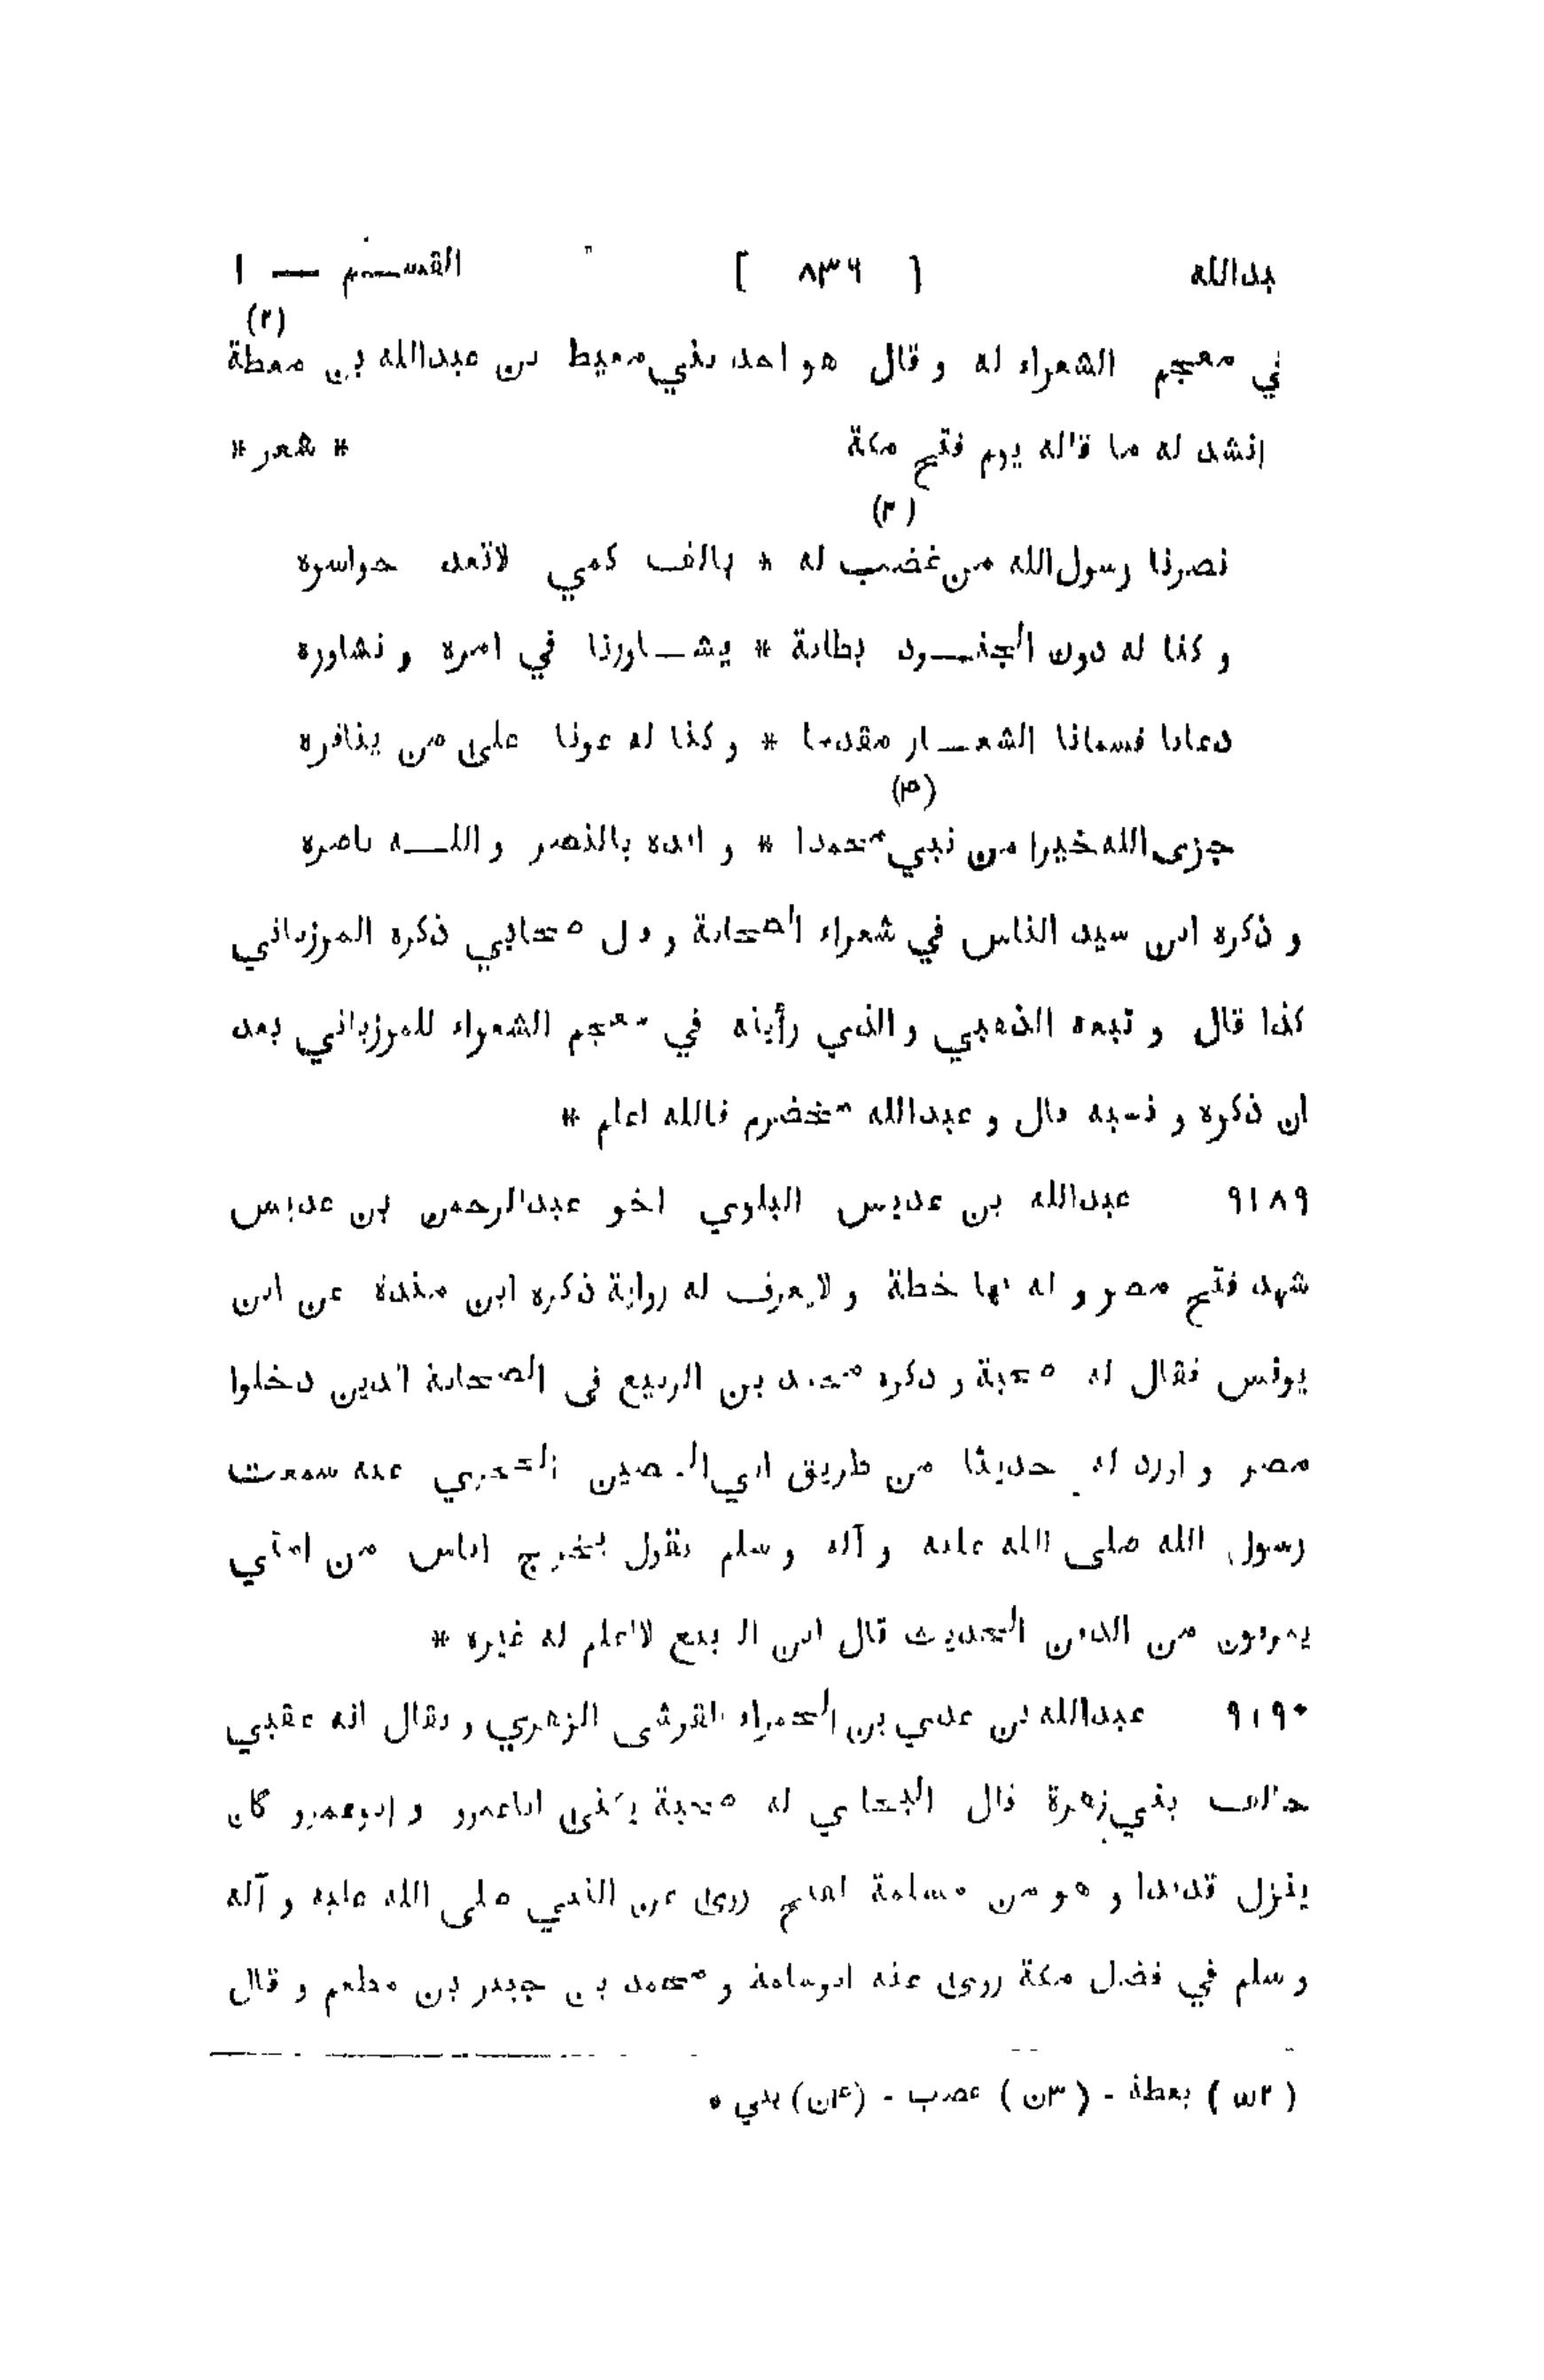 بدالله [ ٨٣٦ ] القسم — ١
(٢)
في معجم الشعراء له و قال هو احد بني معيط بن عبدالله بن معطة
انشد له ما قاله يوم فتح مكة * شعر *
(٣)
نصرنا رسول الله من غضب له * بالف كمي لاتعد حواسره
و كنا له دون الجنود بطانة * يشاورنا في امره و نشاوره
دعانا فسمانا الشعار مقدما * و كنا له عونا على من ينافره
(۴)
جزى الله خيرا من نبي محمدا * و ايده بالنصر و الله ناصره
و ذكره ابن سيد الناس في شعراء الصحابة و قال صحابي ذكره المرزباني
كذا قال و تبعه الذهبي و الذي رأيته في معجم الشعراء للمرزباني بعد
ان ذكره و نسبه قال و عبدالله مخضرم فالله اعلم *
٩١٨٩ عبدالله بن عديس البلوي اخو عبدالرحمن بن عديس
شهد فتح مصر و له بها خطة و لايعرف له رواية ذكره ابن مندة عن ابن
يونس فقال له صحبة و ذكره محمد بن الربيع في الصحابة الذين دخلوا
مصر و اورد له حديثا من طريق ابي الحصين الحجري عنه سمعت
رسول الله صلى الله عليه و آله و سلم يقول يخرج اناس من امتي
يمرقون من الدين الحديث قال ابن الربيع لا اعلم له غيره *
٩١٩٠ عبدالله بن عدي بن الحمراء القرشي الزهري و يقال انه ثقفي
حالف بني زهرة قال البخاري له صحبة يكنى اباعمرو و ابوعمرو كان
ينزل قديدا و هو من مسلمة الفتح روى عن النبي صلى الله عليه و آله
و سلم في فضل مكة روى عنه ابوسلمة و محمد بن جبير بن مطعم و قال
( ٢س ) بعطة - ( ٣ن ) عصب - (۴ن) بني *